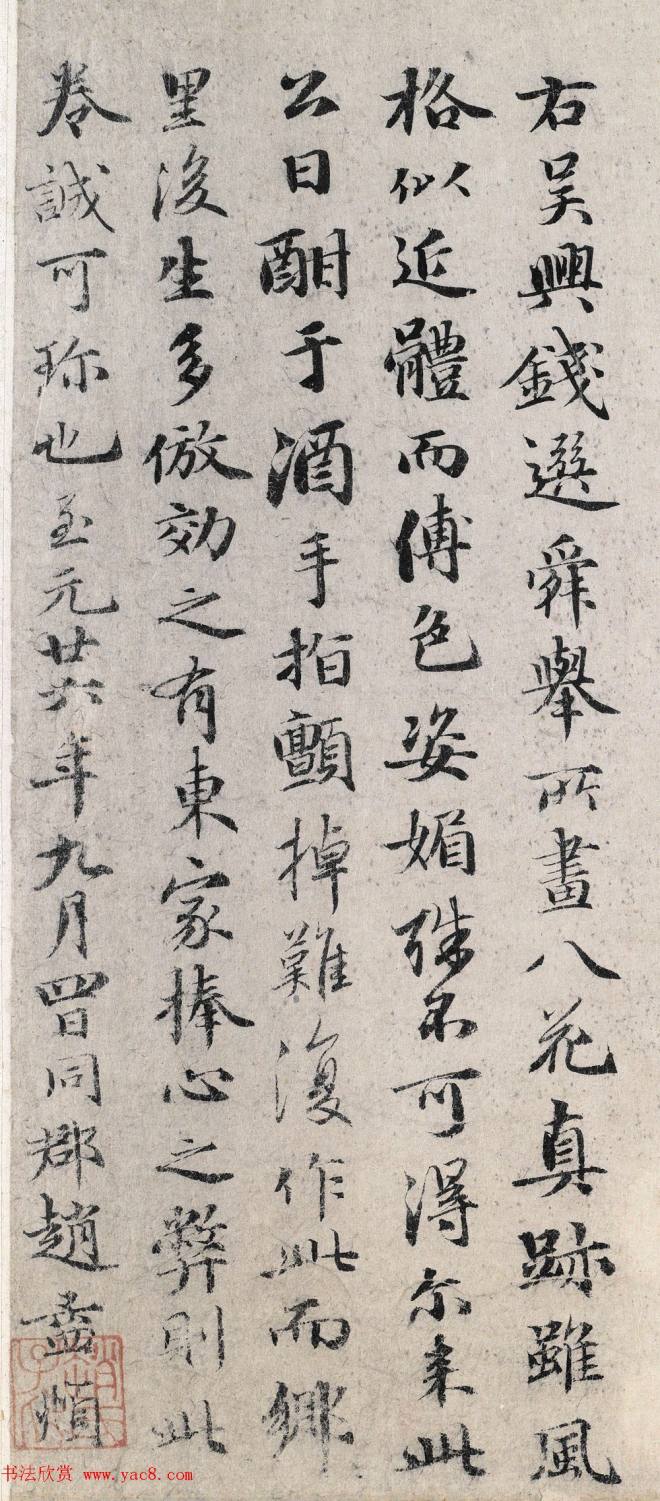 右吴興錢選舜舉所畫八花真跡雖風
格似近體而傅色姿媚殊不可得尔来此
公日酣于酒手指顫掉難復作此而鄉
里後生多倣効之有東家捧心之弊則此
卷誠可珎也至元廿六年九月四日同郡趙孟頫
书法欣赏 www.yac8.com